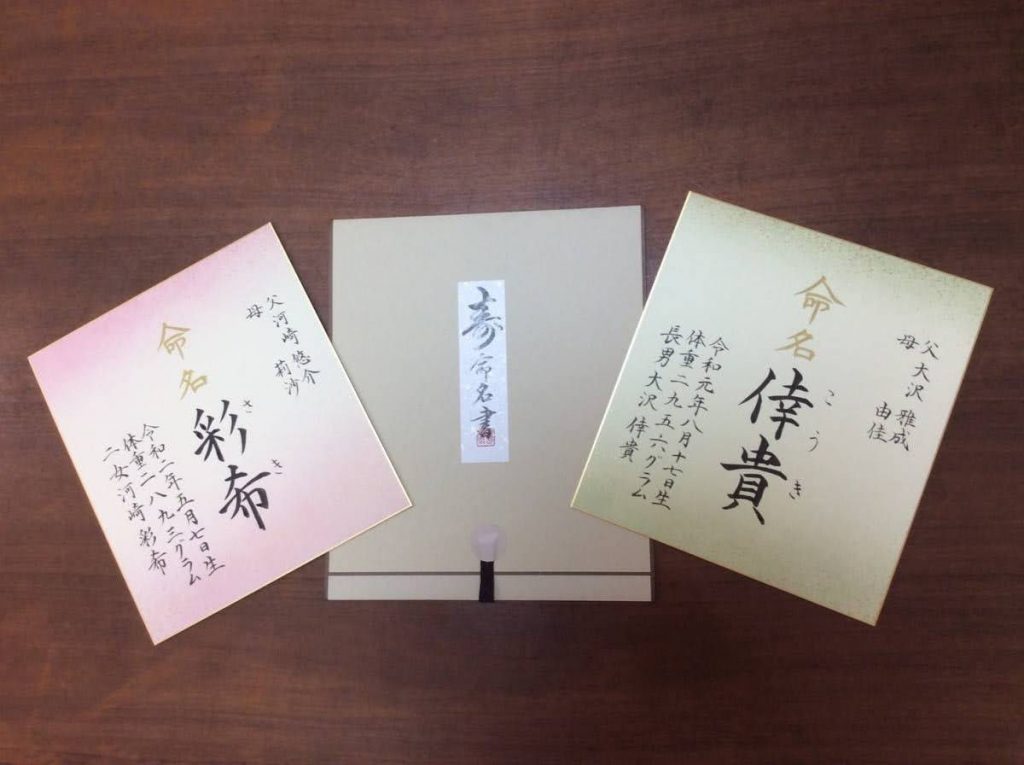 父 河崎 悠介
母 莉沙
命名
彩希
さき
令和二年五月七日生
体重二八九三グラム
二女 河崎 彩希
寿
命名書
父 大沢 雅成
母 由佳
命名
倖貴
こうき
令和元年八月十七日生
体重二九五六グラム
長男 大沢 倖貴